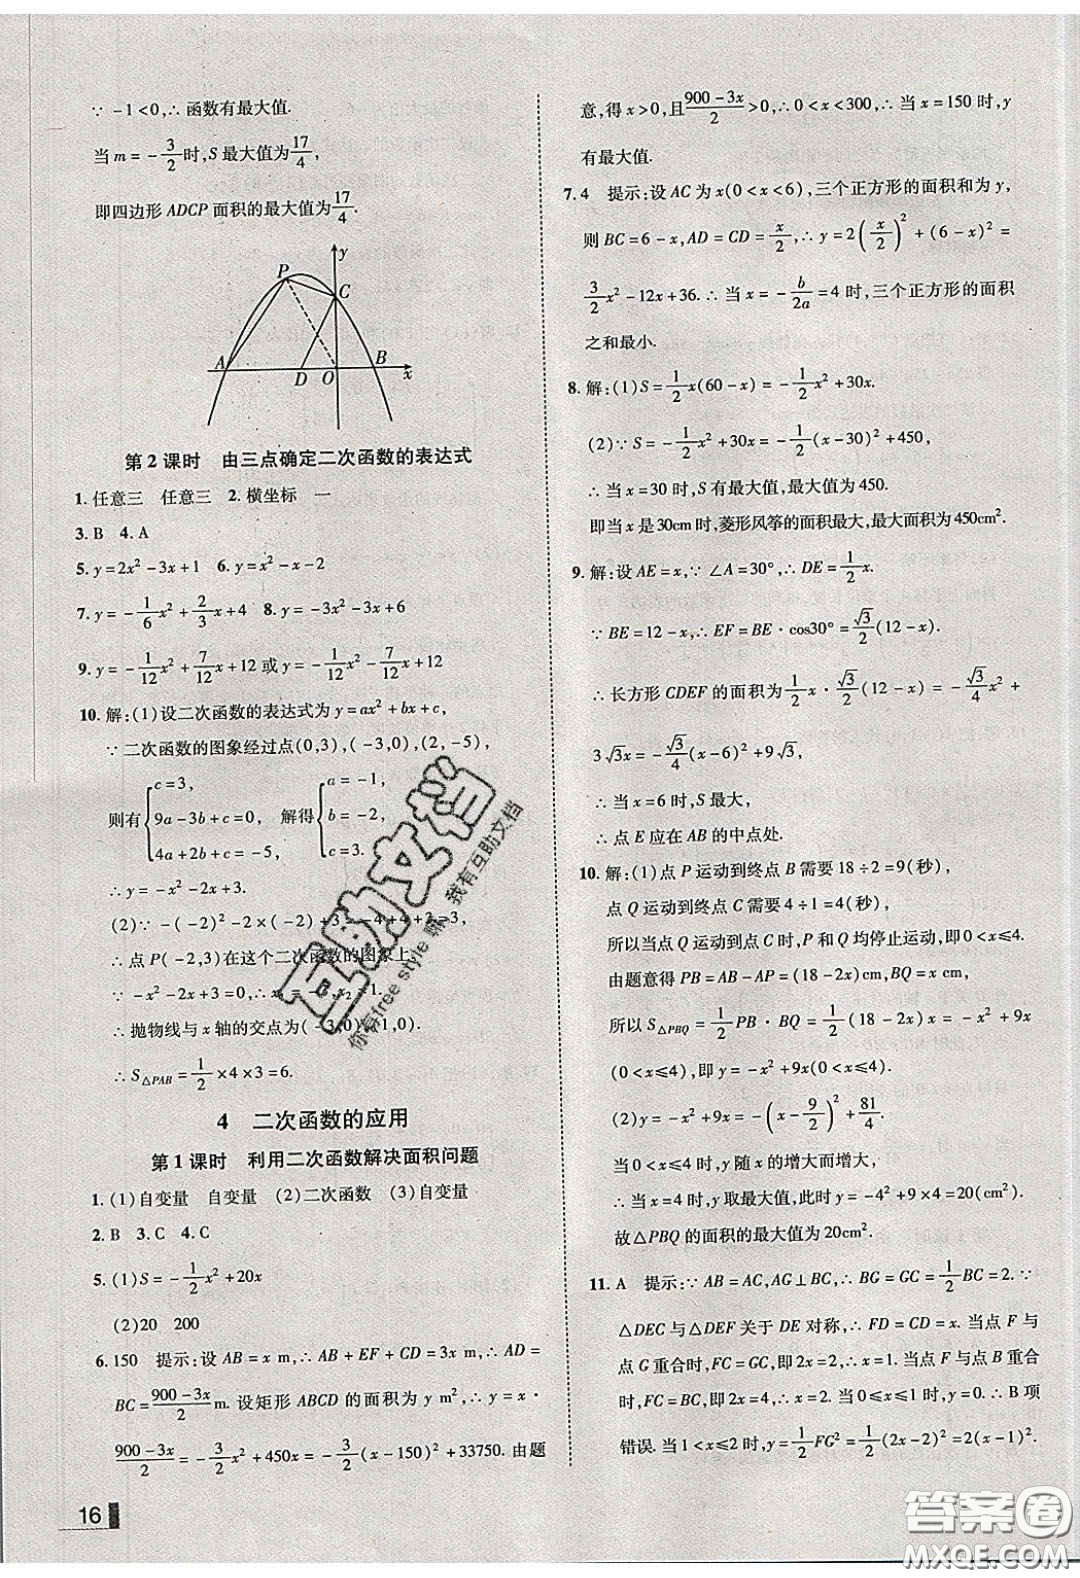 ∵ -1<0,∴ 函数有最大值.
当 m = -3/2 时,S 最大值为 17/4,
即四边形 ADCP 面积的最大值为 17/4.
y
P
C
A
D
O
B
x
第 2 课时 由三点确定二次函数的表达式
1. 任意三 任意三 2. 横坐标 一
3. B 4. A
5. y=2x²-3x+1 6. y=x²-x-2
7. y=-1/6x²+2/3x+4 8. y=-3x²-3x+6
9. y=-1/12x²+7/12x+12 或 y=-1/12x²-7/12x+12
10. 解:(1)设二次函数的表达式为 y=ax²+bx+c,
∵ 二次函数的图象经过点(0,3),(-3,0),(2,-5),
则有{c=3, 9a-3b+c=0, 4a+2b+c=-5, 解得{a=-1, b=-2, c=3.
∴ y=-x²-2x+3.
(2)∵ -(-2)²-2×(-2)+3=-4+4+2=3,
∴ 点 P(-2,3)在这个二次函数的图象上.
∵ -x²-2x+3=0,∴ x₁=-3,x₂=1.
∴ 抛物线与 x 轴的交点为(-3,0),(1,0).
∴ S△PAB=1/2×4×3=6.
4 二次函数的应用
第 1 课时 利用二次函数解决面积问题
1. (1)自变量 自变量 (2)二次函数 (3)自变量
2. B 3. C 4. C
5. (1)S=-1/2x²+20x
(2)20 200
6. 150 提示:设 AB=x m,∴ AB+EF+CD=3x m,∴ AD=
BC=(900-3x)/2 m. 设矩形 ABCD 的面积为 y m²,∴ y=x·
(900-3x)/2=-3/2x²+450x=-3/2(x-150)²+33750. 由题
16
意,得 x>0,且(900-3x)/2>0,∴ 0<x<300,∴ 当 x=150 时,y
有最大值.
7. 4 提示:设 AC 为 x(0<x<6),三个正方形的面积和为 y,
则 BC=6-x,AD=CD=x/2,∴ y=2(x/2)²+(6-x)²=
3/2x²-12x+36. ∴ 当 x=-b/2a=4 时,三个正方形的面积
之和最小.
8. 解:(1)S=1/2x(60-x)=-1/2x²+30x.
(2)∵ S=-1/2(x-30)²+450,
∴ 当 x=30 时,S 有最大值,最大值为 450.
即当 x 是 30cm 时,菱形风筝的面积最大,最大面积为 450cm².
9. 解:设 AE=x,∵ ∠A=30°,∴ DE=1/2x.
∵ BE=12-x,∴ EF=BE·cos30°=√3/2(12-x).
∴ 长方形 CDEF 的面积为 1/2x·√3/2(12-x)=-√3/4x²+
3√3x=-√3/4(x-6)²+9√3.
∴ 当 x=6 时,S 最大,
∴ 点 E 应在 AB 的中点处.
10. 解:(1)点 P 运动到终点 B 需要 18÷2=9(秒),
点 Q 运动到终点 C 需要 4÷1=4(秒),
所以当点 Q 运动到点 C 时,P 和 Q 均停止运动,即 0<x≤4.
由题意得 PB=AB-AP=(18-2x)cm,BQ=x,
所以 S△PBQ=1/2PB·BQ=1/2(18-2x)x=-x²+9x
(0<x≤4),即 y=-x²+9x(0<x≤4).
(2)y=-x²+9x=-(x-9/2)²+81/4.
当 0<x≤4 时,y 随 x 的增大而增大,
∴ 当 x=4 时,y 取最大值,此时 y=-4²+9×4=20(cm²).
故△PBQ 的面积的最大值为 20cm².
11. A 提示:∵ AB=AC,AG⊥BC,∴ BG=GC=1/2BC=2. ∵
△DEC 与△DEF 关于 DE 对称,∴ FD=CD=x. 当点 F 与
点 G 重合时,FC=GC,即 2x=2,∴ x=1. 当点 F 与点 B 重合
时,FC=BC,即 2x=4,∴ x=2. 当 0≤x≤1 时,y=0. ∴ B 项
错误. 当 1<x≤2 时,y=1/2FG²=1/2(2x-2)²=2(x-1)².
互助文档
你有free style 咪 我有互助文档
答案圈
MXQE.COM